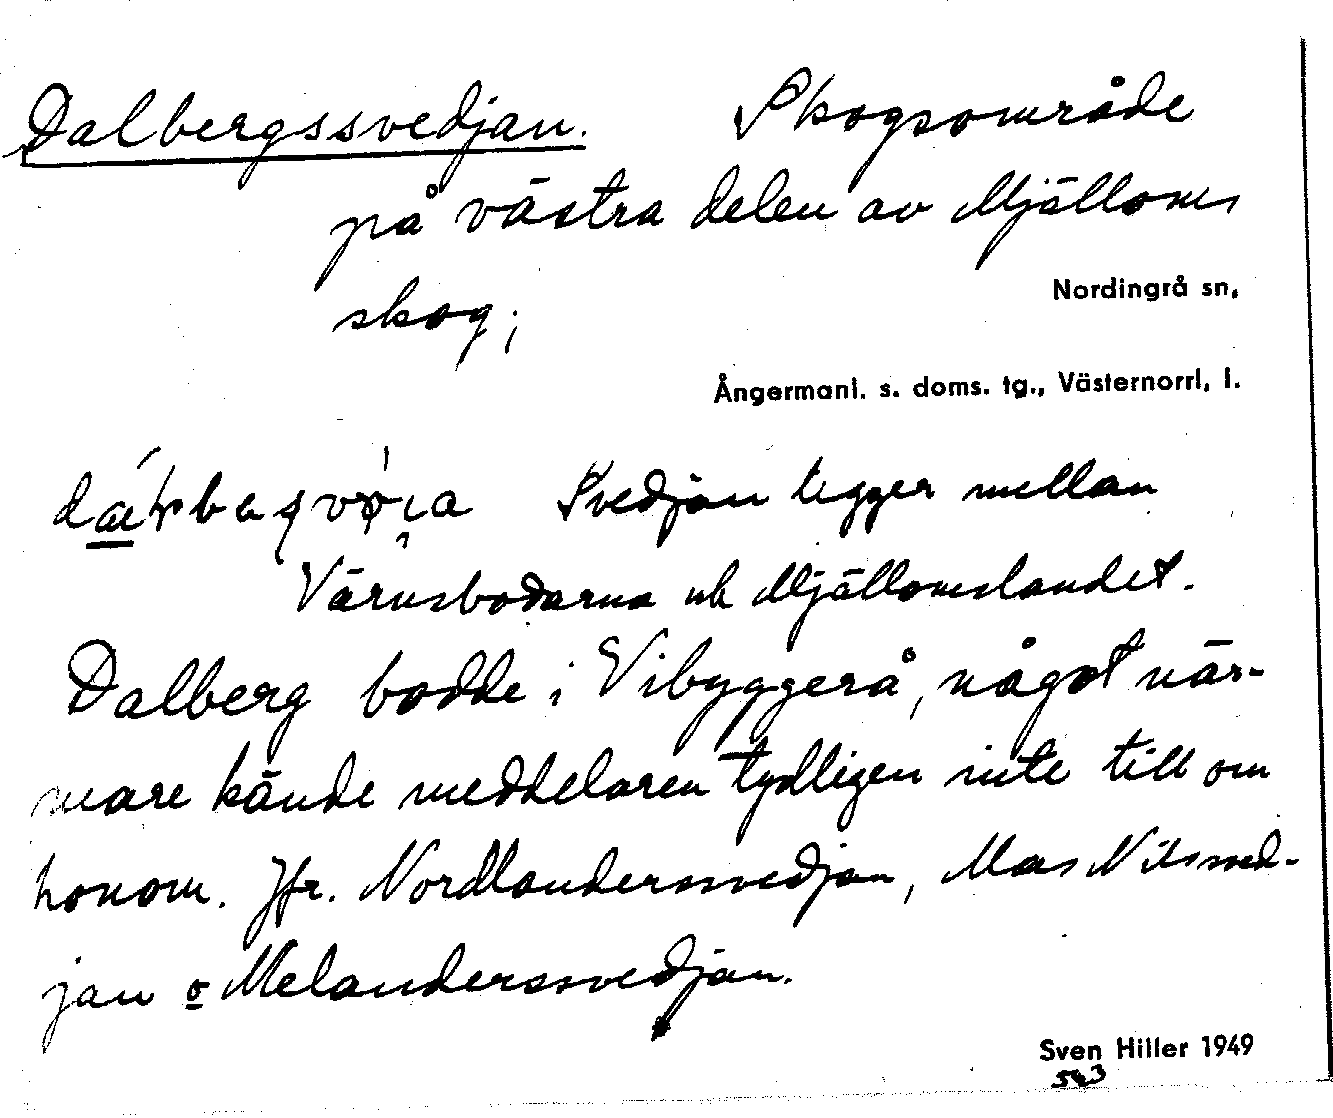 Dalbergssvedjan. Skogsområde
på västra delen av Mjälloms
skog;
Nordingrå sn,
Ångermanl. s. doms. tg., Västernorrl. l.
Svedjan ligger mellan
Värnsbodarna och Mjällomslandet.
Dalberg bodde i Vibyggerå, något när-
mare kände meddelaren tydligen inte till om
honom. Jfr. Nordlanderssvedjan, Mas Nilssved-
jan o Melanderssvedjan.
Sven Hiller 1949